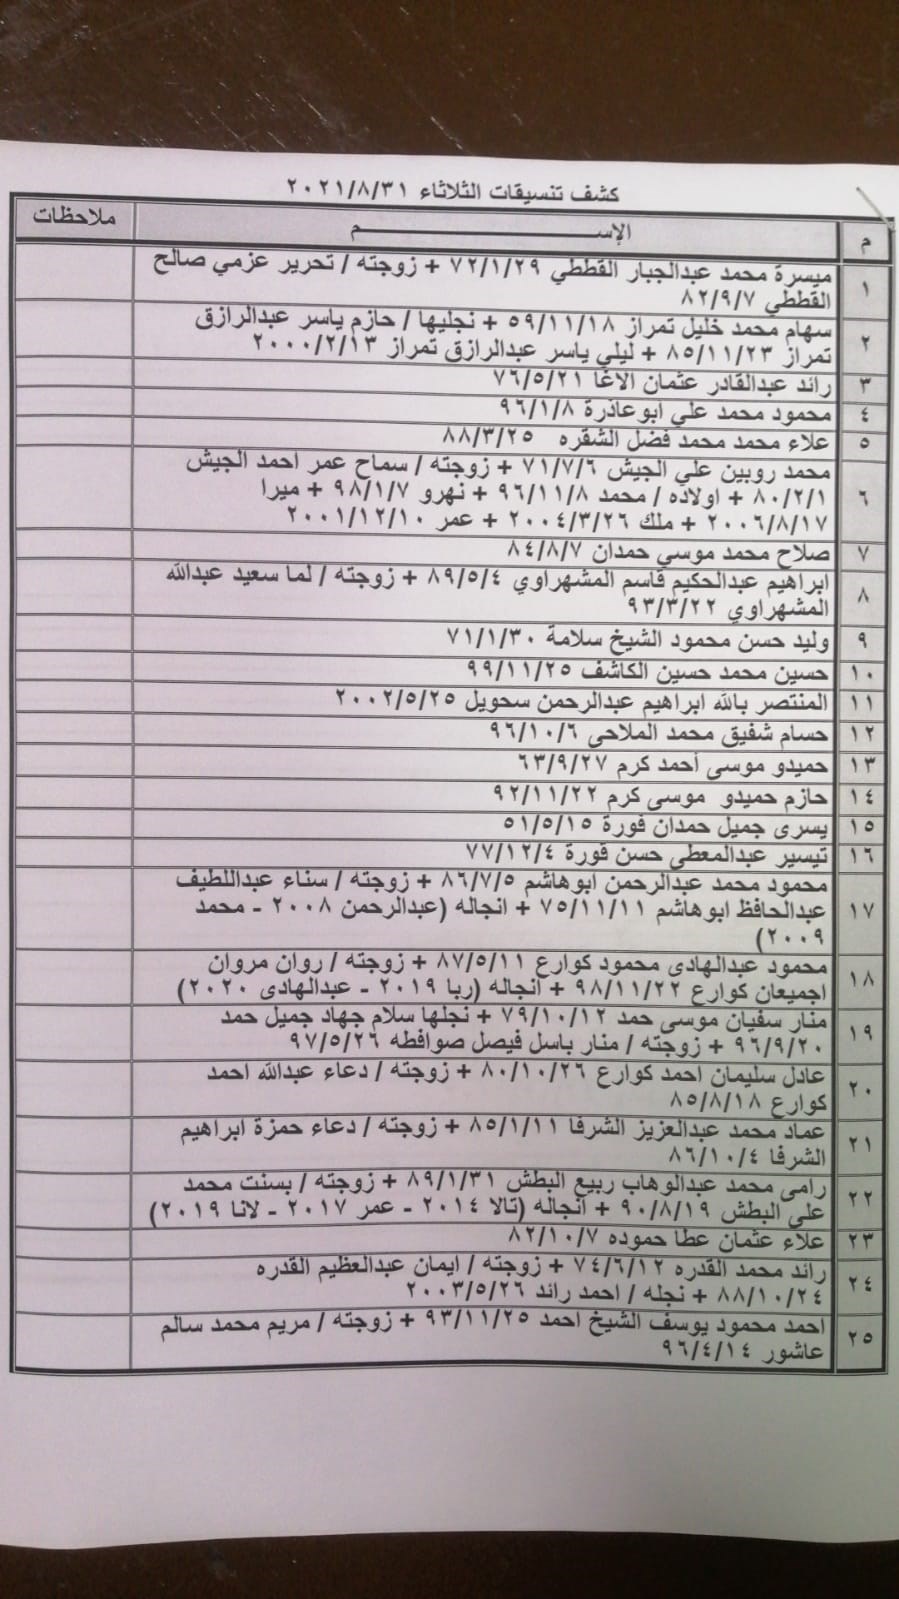 كشف تنسيقات الثلاثاء ٢٠٢١/٨/٣١
م الإســـــــم ملاحظات
١ ميسرة محمد عبدالجبار القططي ٧٢/١/٢٩ + زوجته / تحرير عزمي صالح
القططي ٨٢/٩/٧
٢ سهام محمد خليل تمراز ٥٩/١١/١٨ + نجليها / حازم ياسر عبدالرازق
تمراز ٨٥/١١/٢٣ + ليلي ياسر عبدالرازق تمراز ٢٠٠٠/٢/١٣
٣ رائد عبدالقادر عثمان الاغا ٧٦/٥/٢١
٤ محمود محمد علي ابوعاذرة ٩٦/١/٨
٥ علاء محمد محمد فضل الشقره ٨٨/٣/٢٥
٦ محمد روبين علي الجيش ٧١/٧/٦ + زوجته / سماح عمر احمد الجيش
٨٠/٢/١ + اولاده / محمد ٩٦/١١/٨ + نهرو ٩٨/١/٧ + ميرا
٢٠٠٦/٨/١٧ + ملك ٢٠٠٤/٣/٢٦ + عمر ٢٠٠١/١٢/١٠
٧ صلاح محمد موسي حمدان ٨٤/٨/٧
٨ ابراهيم عبدالحكيم قاسم المشهراوي ٨٩/٥/٤ + زوجته / لما سعيد عبدالله
المشهراوي ٩٣/٣/٢٢
٩ وليد حسن محمود الشيخ سلامة ٧١/١/٣٠
١٠ حسين محمد حسين الكاشف ٩٩/١١/٢٥
١١ المنتصر بالله ابراهيم عبدالرحمن سحويل ٢٠٠٢/٥/٢٥
١٢ حسام شفيق محمد الملاحى ٩٦/١٠/٦
١٣ حميدو موسى أحمد كرم ٦٣/٩/٢٧
١٤ حازم حميدو موسى كرم ٩٢/١١/٢٢
١٥ يسرى جميل حمدان قورة ٥١/٥/١٥
١٦ تيسير عبدالمعطى حسن قورة ٧٧/١٢/٤
١٧ محمود محمد عبدالرحمن ابوهاشم ٨٦/٧/٥ + زوجته / سناء عبداللطيف
عبدالحافظ ابوهاشم ٧٥/١١/١١ + انجاله (عبدالرحمن ٢٠٠٨ - محمد
٢٠٠٩)
١٨ محمود عبدالهادى محمود كوارع ٨٧/٥/١١ + زوجته / روان مروان
اجميعان كوارع ٩٨/١١/٢٢ + انجاله (ربا ٢٠١٩ - عبدالهادى ٢٠٢٠)
١٩ منار سفيان موسى حمد ٧٩/١٠/١٢ + نجلها سلام جهاد جميل حمد
٩٦/٩/٢٠ + زوجته / منار باسل فيصل صوافطه ٩٧/٥/٢٦
٢٠ عادل سليمان احمد كوارع ٨٠/١٠/٢٦ + زوجته / دعاء عبدالله احمد
كوارع ٨٥/٨/١٨
٢١ عماد محمد عبدالعزيز الشرفا ٨٥/١/١١ + زوجته / دعاء حمزة ابراهيم
الشرفا ٨٦/١٠/٤
٢٢ رامى محمد عبدالوهاب ربيع البطش ٨٩/١/٣١ + زوجته / بسنت محمد
على البطش ٩٠/٨/١٩ + انجاله (تالا ٢٠١٤ - عمر ٢٠١٧ - لانا ٢٠١٩)
٢٣ علاء عثمان عطا حموده ٨٢/١٠/٧
٢٤ رائد محمد القدره ٧٤/٦/١٢ + زوجته / ايمان عبدالعظيم القدره
٨٨/١٠/٢٤ + نجله / احمد رائد ٢٠٠٣/٥/٢٦
٢٥ احمد محمود يوسف الشيخ احمد ٩٣/١١/٢٥ + زوجته / مريم محمد سالم
عاشور ٩٦/٤/١٤